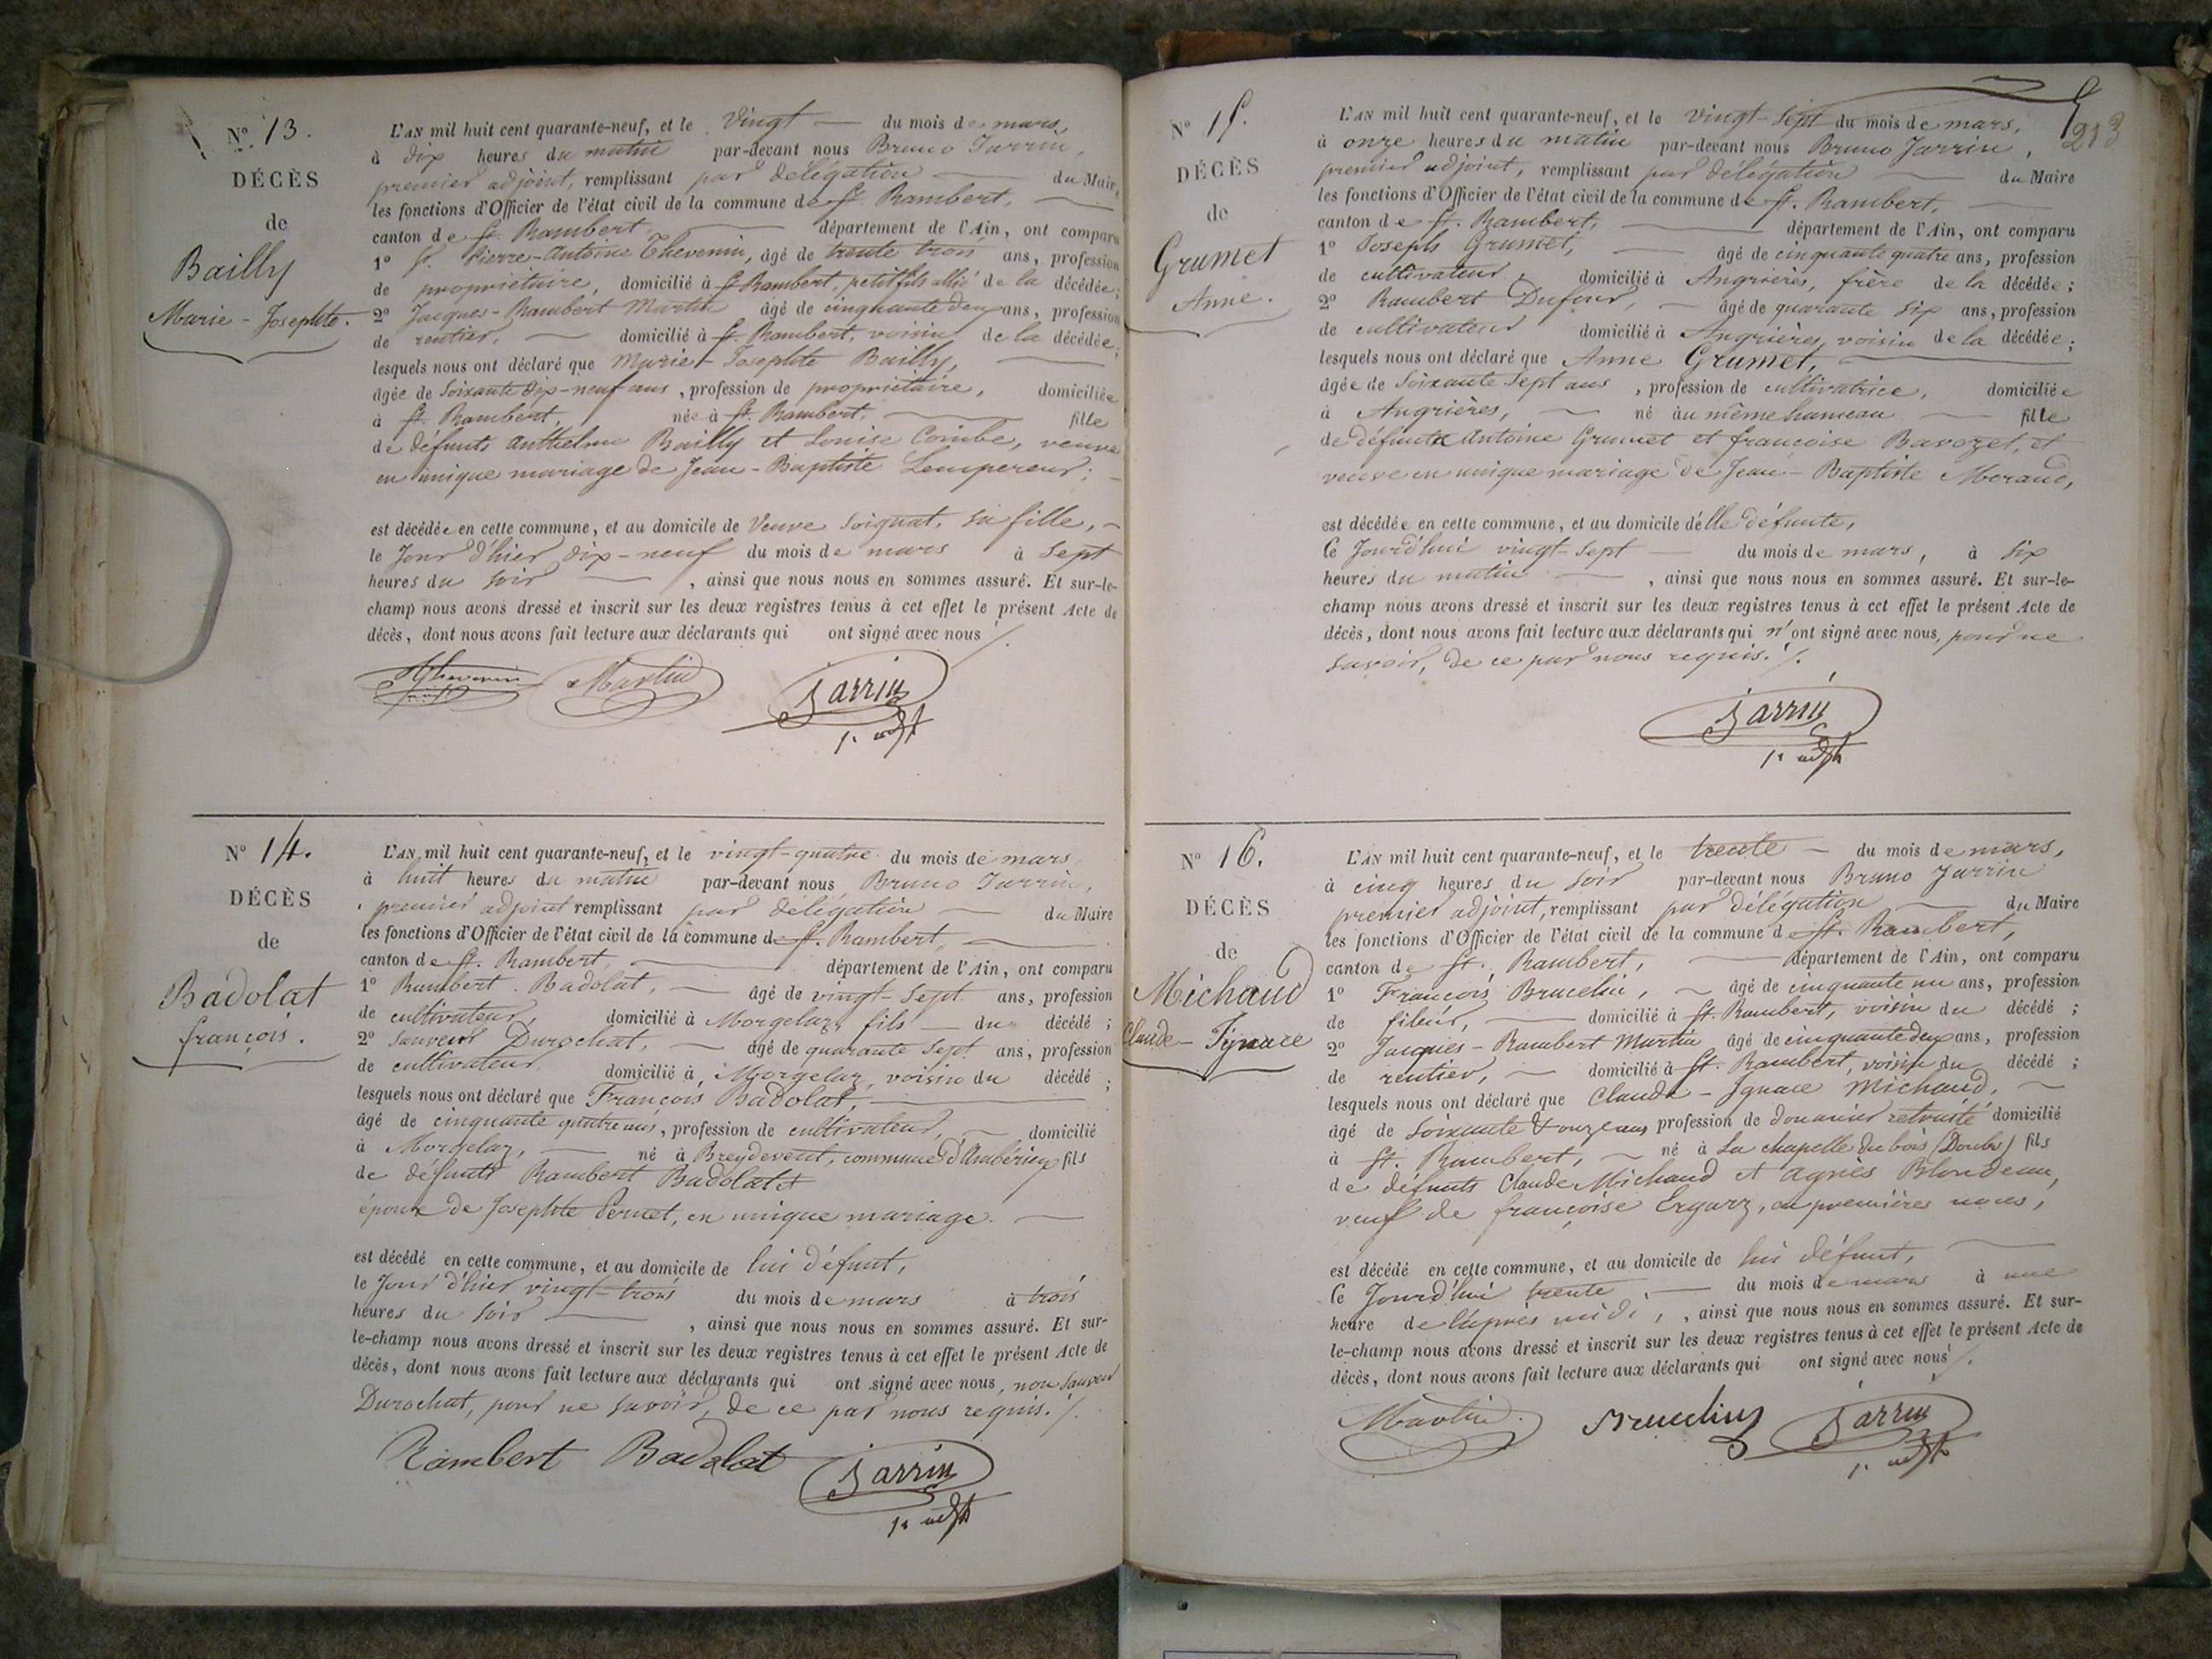 N° 13.
DÉCÈS
de
Bailly
Marie-Josephte.
L'AN mil huit cent quarante-neuf, et le vingt du mois de mars,
à dix heures du matin par-devant nous Bruno Jarrin,
premier adjoint, remplissant par délégation du Maire
les fonctions d'Officier de l'état civil de la commune de St. Rambert,
canton de St. Rambert, département de l'Ain, ont comparu
1° Sr. Pierre-Antoine Thevenin, âgé de trente trois ans, profession
de propriétaire, domicilié à St Rambert, petit fils allié de la décédée;
2° Jacques-Rambert Martin âgé de cinquante deux ans, profession
de rentier, domicilié à St. Rambert, voisin de la décédée;
lesquels nous ont déclaré que Marie-Josephte Bailly,
âgée de soixante dix-neuf ans, profession de propriétaire, domiciliée
à St. Rambert, née à St. Rambert, fille
de défunts Anthelme Bailly et Louise Combe, veuve
en unique mariage de Jean-Baptiste Lempereur;
est décédée en cette commune, et au domicile de Veuve Soignat, sa fille,
le jour d'hier dix-neuf du mois de mars à sept
heures du soir, ainsi que nous nous en sommes assuré. Et sur-le-
champ nous avons dressé et inscrit sur les deux registres tenus à cet effet le présent Acte de
décès, dont nous avons fait lecture aux déclarants qui ont signé avec nous ./.
Thevenin Martin Jarrin
1r adjt
N° 14.
DÉCÈS
de
Badolat
françois.
L'AN mil huit cent quarante-neuf, et le vingt-quatre du mois de mars
à huit heures du matin par-devant nous Bruno Jarrin,
premier adjoint remplissant par délégation du Maire
les fonctions d'Officier de l'état civil de la commune de St. Rambert,
canton de St. Rambert, département de l'Ain, ont comparu
1° Rambert Badolat, âgé de vingt-sept ans, profession
de cultivateur, domicilié à Morgelaz, fils du décédé;
2° Sauveur Durochat, âgé de quarante sept ans, profession
de cultivateur domicilié à Morgelaz, voisin du décédé;
lesquels nous ont déclaré que François Badolat,
âgé de cinquante quatre ans, profession de cultivateur, domicilié
à Morgelaz, né à Breydevent, commune d'Ambérieux fils
de défunts Rambert Badolat et
époux de Josephte Pernet, en unique mariage.
est décédé en cette commune, et au domicile de lui défunt,
le jour d'hier vingt-trois du mois de mars à trois
heures du soir, ainsi que nous nous en sommes assuré. Et sur-
le-champ nous avons dressé et inscrit sur les deux registres tenus à cet effet le présent Acte de
décès, dont nous avons fait lecture aux déclarants qui ont signé avec nous, non Sauveur
Durochat, pour ne savoir, de ce par nous requis. ./.
Rambert Badolat Jarrin
1r adjt
213
N° 15.
DÉCÈS
de
Grumet
Anne.
L'AN mil huit cent quarante-neuf, et le vingt-sept du mois de mars,
à onze heures du matin par-devant nous Bruno Jarrin,
premier adjoint, remplissant par délégation du Maire
les fonctions d'Officier de l'état civil de la commune de St. Rambert,
canton de St. Rambert, département de l'Ain, ont comparu
1° Joseph Grumet, âgé de cinquante quatre ans, profession
de cultivateur, domicilié à Angrières, frère de la décédée;
2° Rambert Dufour, âgé de quarante six ans, profession
de cultivateur domicilié à Angrières, voisin de la décédée;
lesquels nous ont déclaré que Anne Grumet,
âgée de soixante sept ans, profession de cultivatrice, domiciliée
à Angrières, né au même hameau fille
de défunts Antoine Grumet et françoise Bavozet, et
veuve en unique mariage de Jean-Baptiste Morand,
est décédée en cette commune, et au domicile d'elle défunte,
Ce jourd'hui vingt-sept du mois de mars, à six
heures du matin, ainsi que nous nous en sommes assuré. Et sur-le-
champ nous avons dressé et inscrit sur les deux registres tenus à cet effet le présent Acte de
décès, dont nous avons fait lecture aux déclarants qui n'ont signé avec nous, pour ne
savoir, de ce par nous requis. ./.
Jarrin
1r adjt
N° 16.
DÉCÈS
de
Michaud
Claude-Ignace
L'AN mil huit cent quarante-neuf, et le trente du mois de mars,
à cinq heures du soir par-devant nous Bruno Jarrin
premier adjoint, remplissant par délégation du Maire
les fonctions d'Officier de l'état civil de la commune de St. Rambert,
canton de St. Rambert, département de l'Ain, ont comparu
1° François Brucelin, âgé de cinquante un ans, profession
de fileur, domicilié à St. Rambert, voisin du décédé;
2° Jacques-Rambert Martin âgé de cinquante deux ans, profession
de rentier, domicilié à St. Rambert, voisin du décédé;
lesquels nous ont déclaré que Claude-Ignace Michaud,
âgé de soixante & onze ans profession de douanier retraité domicilié
à St. Rambert, né à La chapelle du bois (Doubs) fils
de défunts Claude Michaud et Agnès Blondeau,
veuf de françoise Ergarz, en premières noces,
est décédé en cette commune, et au domicile de lui défunt,
Ce jourd'hui trente du mois de mars à une
heure de l'après midi, ainsi que nous nous en sommes assuré. Et sur-
le-champ nous avons dressé et inscrit sur les deux registres tenus à cet effet le présent Acte de
décès, dont nous avons fait lecture aux déclarants qui ont signé avec nous ./.
Martin Brucelin Jarrin
1r adjt